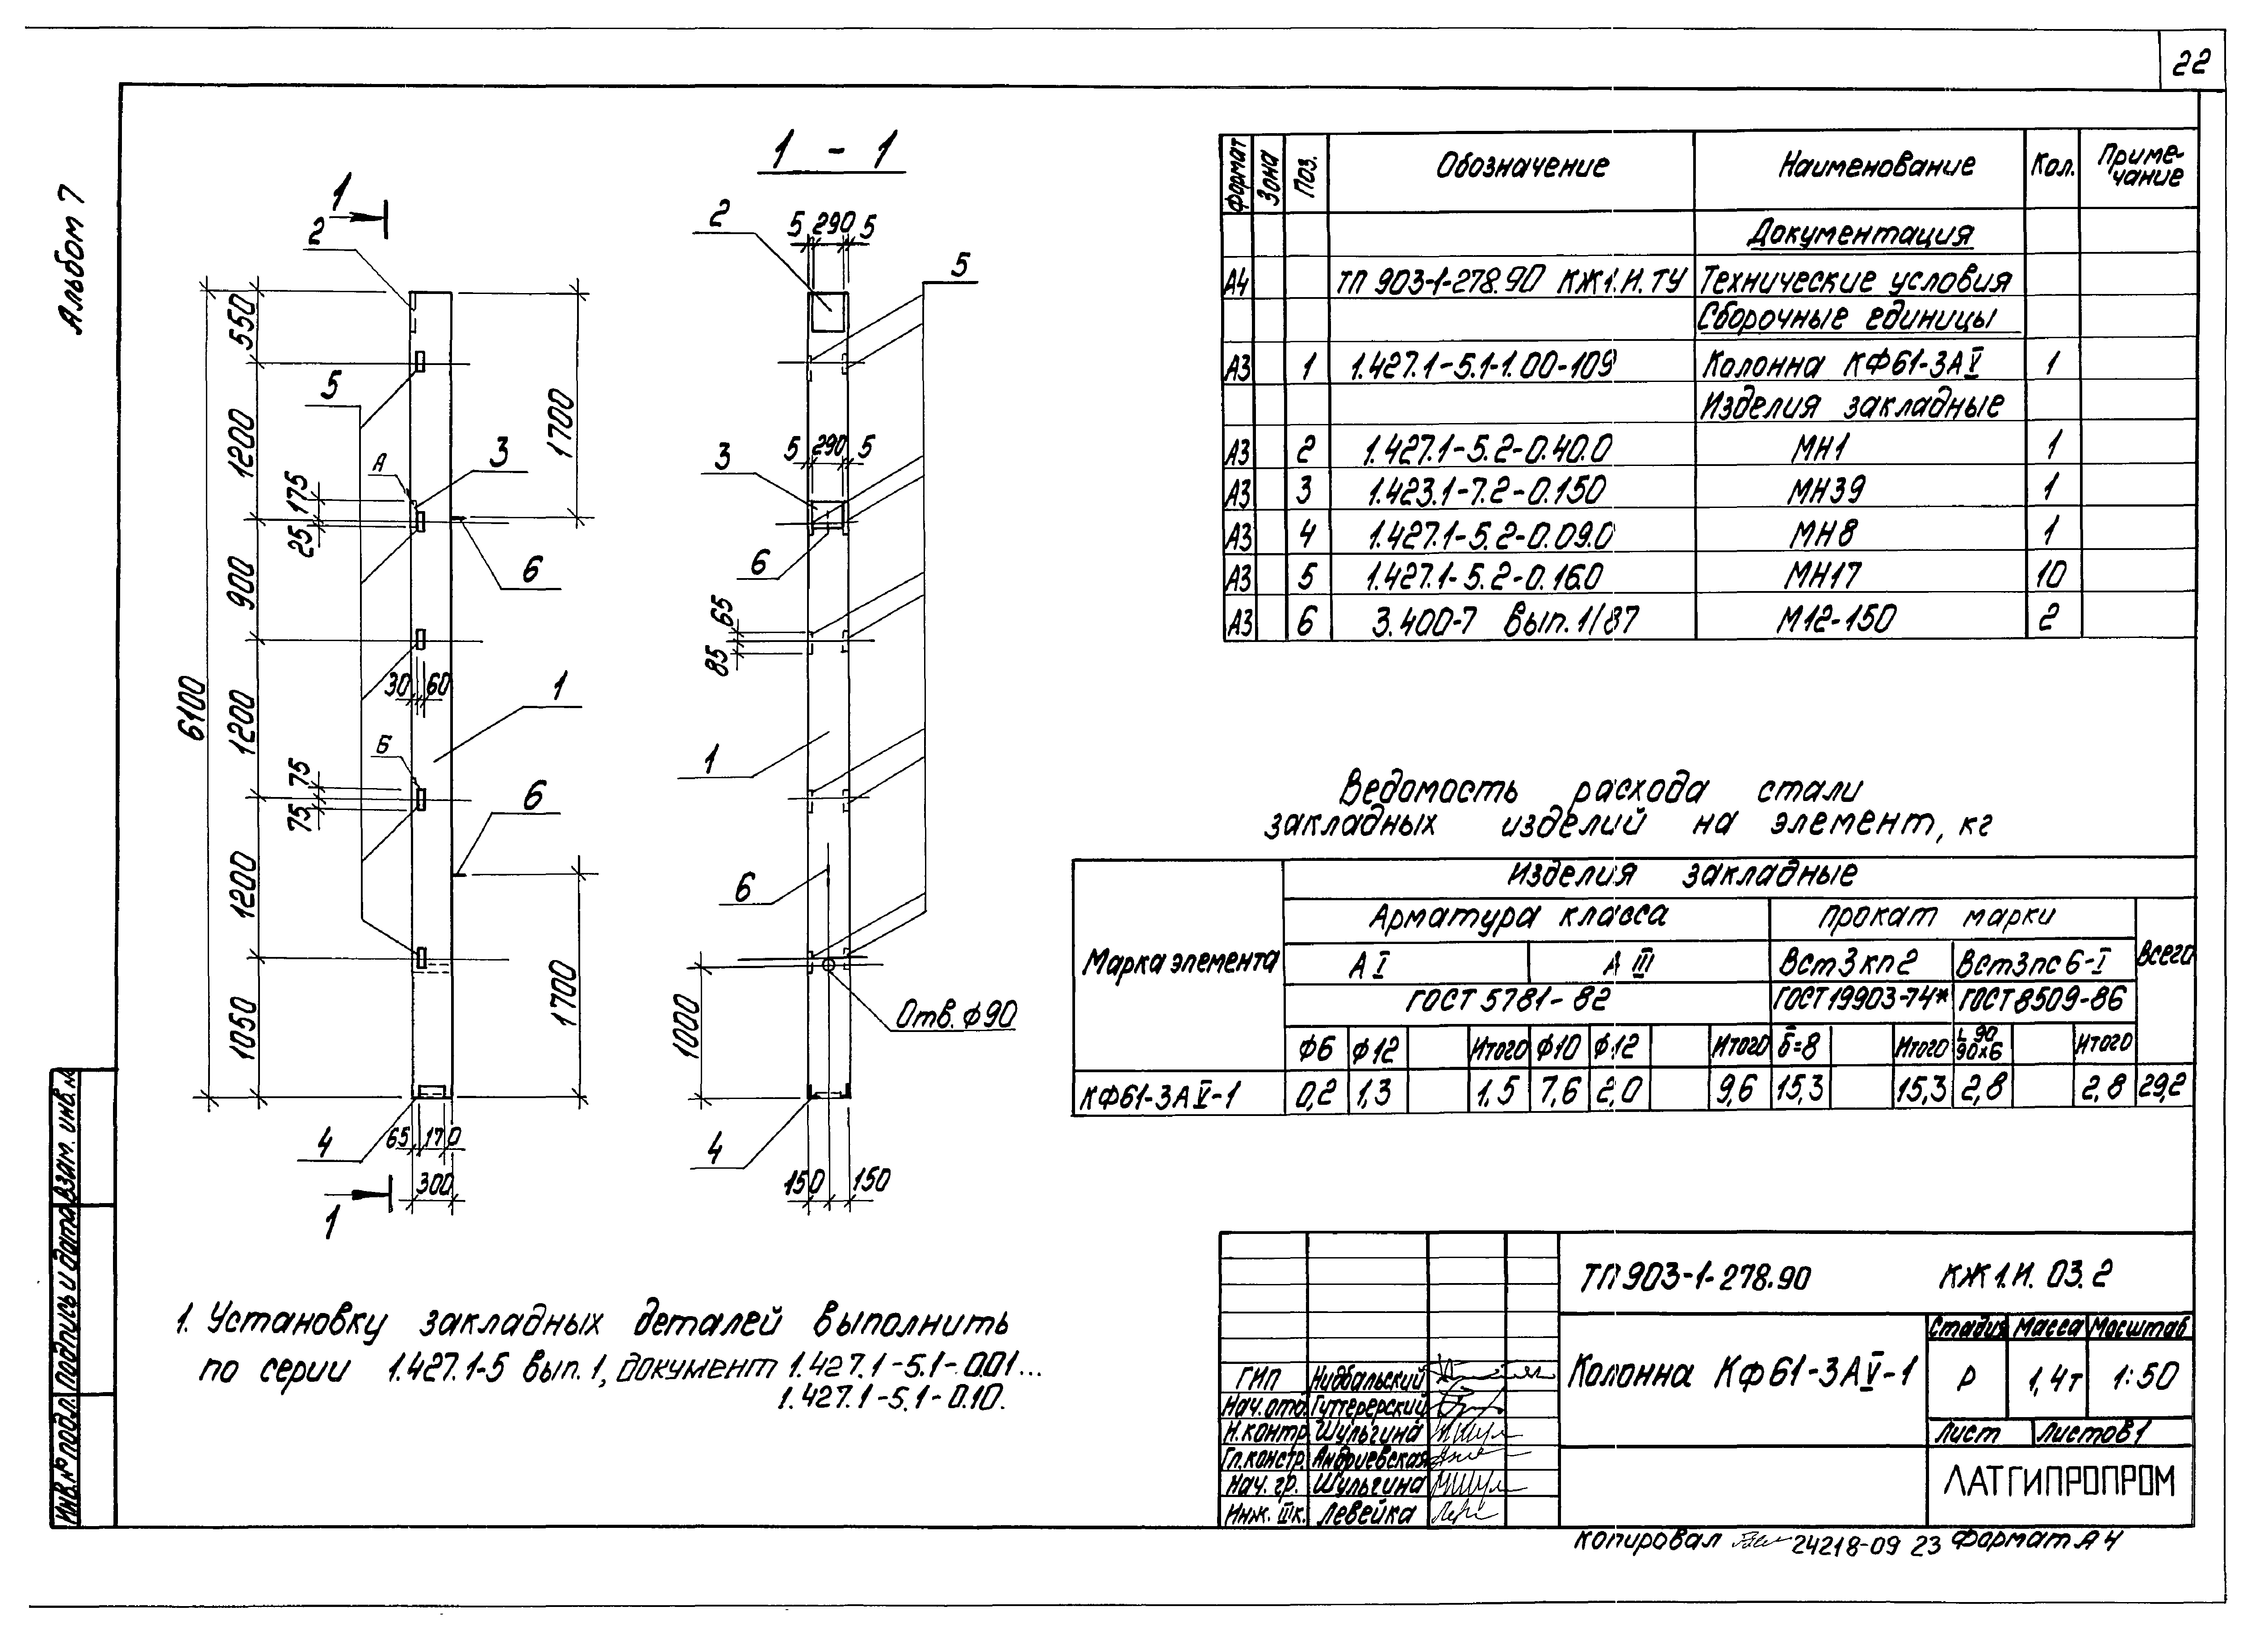 22
Альбом 7
1 - 1
1
2
550
5
1200
А
3
175
25
6
900
6100
30 60
1200
1
Б
75
75
6
1200
1050
1700
1700
4
65 170
300
1
2
5 290 5
5
3
5 290 5
6
65
85
1
6
1000
Отв. ф90
4
150 150
Формат Зона Поз. Обозначение Наименование Кол. Приме-
чание
Документация
А4 ТП 903-1-278.90 КЖ1.И.ТУ Технические условия
Сборочные единицы
А3 1 1.427.1-5.1-1.00-109 Колонна КФ61-3АV 1
Изделия закладные
А3 2 1.427.1-5.2-0.40.0 МН1 1
А3 3 1.423.1-7.2-0.150 МН39 1
А3 4 1.427.1-5.2-0.09.0 МН8 1
А3 5 1.427.1-5.2-0.16.0 МН17 10
А3 6 3.400-7 вып. 1/87 М12-150 2
Ведомость расхода стали
закладных изделий на элемент, кг
Марка элемента
Изделия закладные
Арматура класса Прокат марки
Всего
А I А III ВСт3кп2 ВСт3пс6-I
ГОСТ 5781-82 ГОСТ19903-74* ГОСТ8509-86
ф6 ф12 Итого ф10 ф12 Итого δ=8 Итого L90
90×6 Итого
КФ61-3АV-1 0,2 1,3 1,5 7,6 2,0 9,6 15,3 15,3 2,8 2,8 29,2
1. Установку закладных деталей выполнить
по серии 1.427.1-5 вып. 1, документ 1.427.1-5.1-0.01...
1.427.1-5.1-0.10.
ТП 903-1-278.90 КЖ1.И. 03.2
Колонна КФ61-3АV-1
Стадия Масса Масштаб
Р 1,4т 1:50
Лист Листов 1
ЛАТГИПРОПРОМ
ГИП Нидбальский
Нач. отд. Гуттерерский
Н.контр. Шульгина
Гл.констр. Андриевская
Нач. гр. Шульгина
Инж. IIIк. Левейка
Инв.№подл. Подпись и дата Взам. инв.№
Копировал 24218-09 23 Формат А4